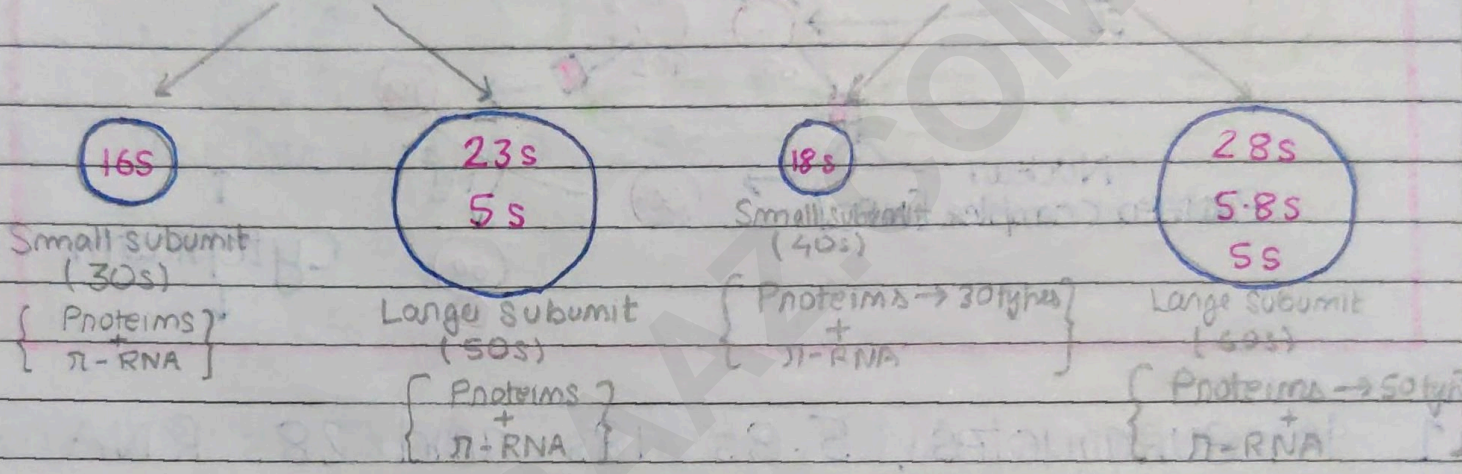 16S
Small subunit
(30s)
{ Proteins
+
r-RNA }
23s
5s
Large subunit
(50s)
{ Proteins
+
r-RNA }
18s
Small subunit
(40s)
{ Proteins → 30 types
+
r-RNA }
28s
5.8s
5s
Large subunit
(60s)
{ Proteins → 50 typ
+
r-RNA